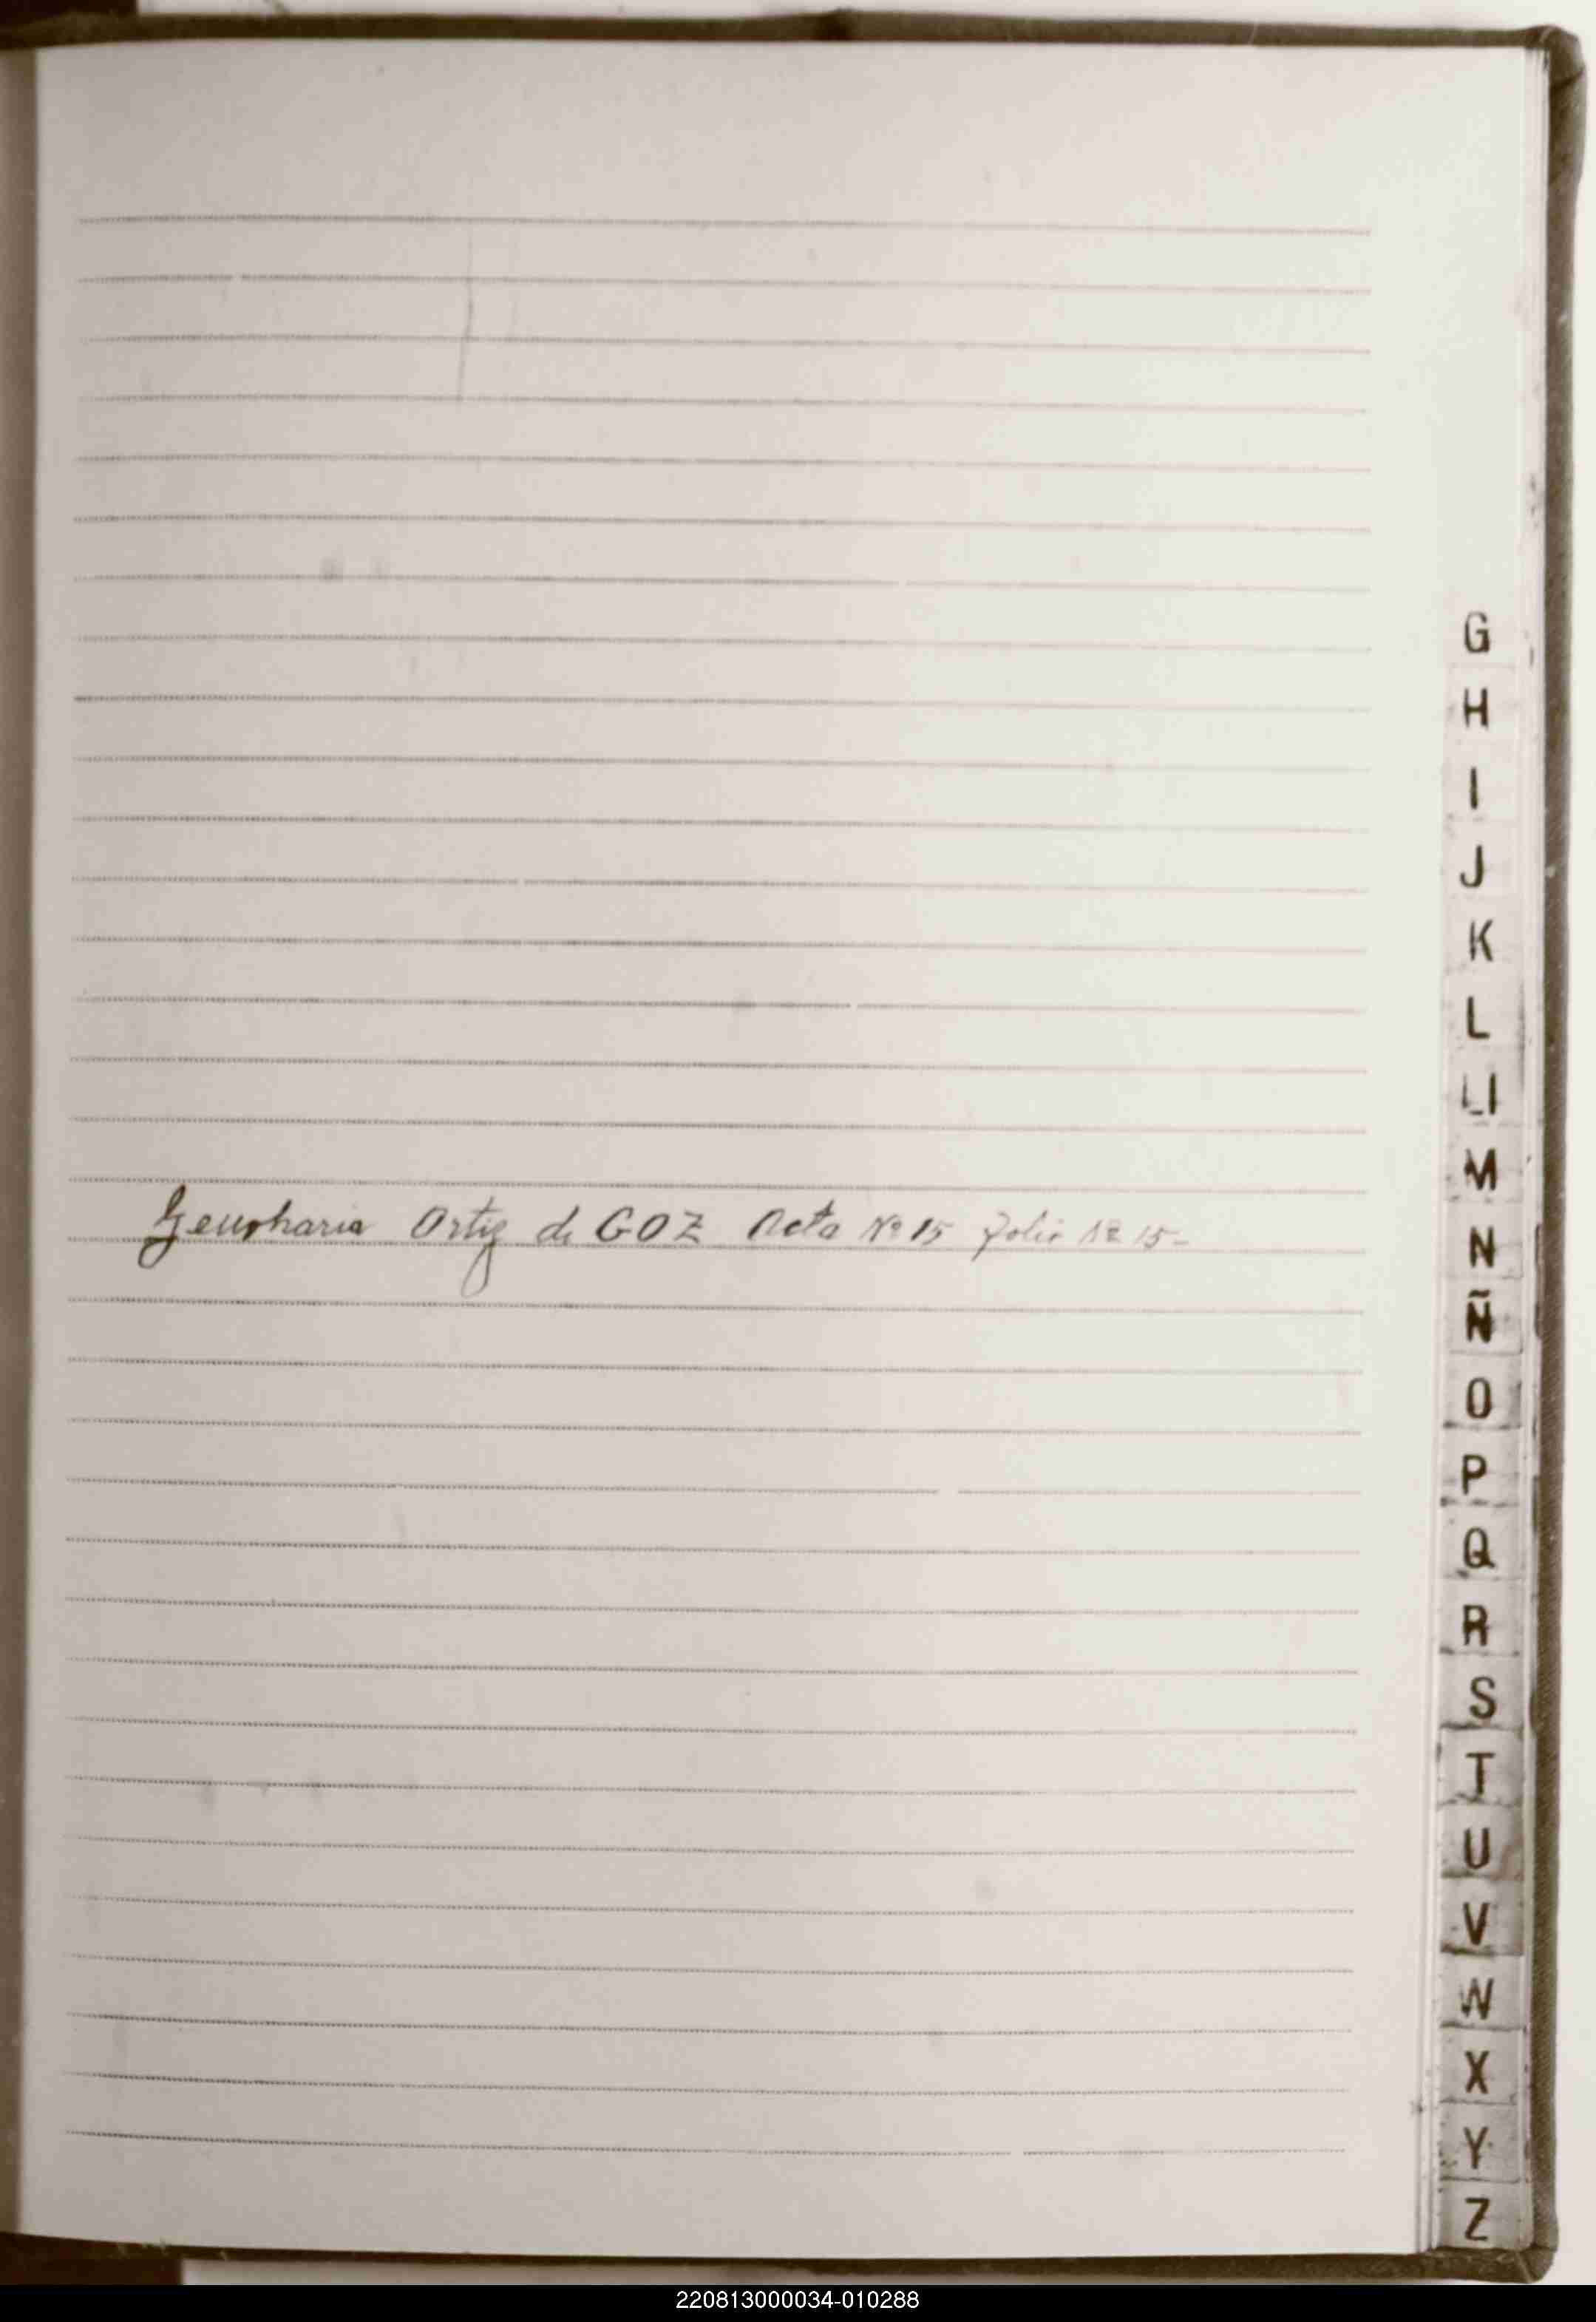 Ortiz de GOZ Acta Nº 15 folio Nº 15-
G
H
I
J
K
L
Ll
M
N
Ñ
O
P
Q
R
S
T
U
V
W
X
Y
Z
220813000034-010288